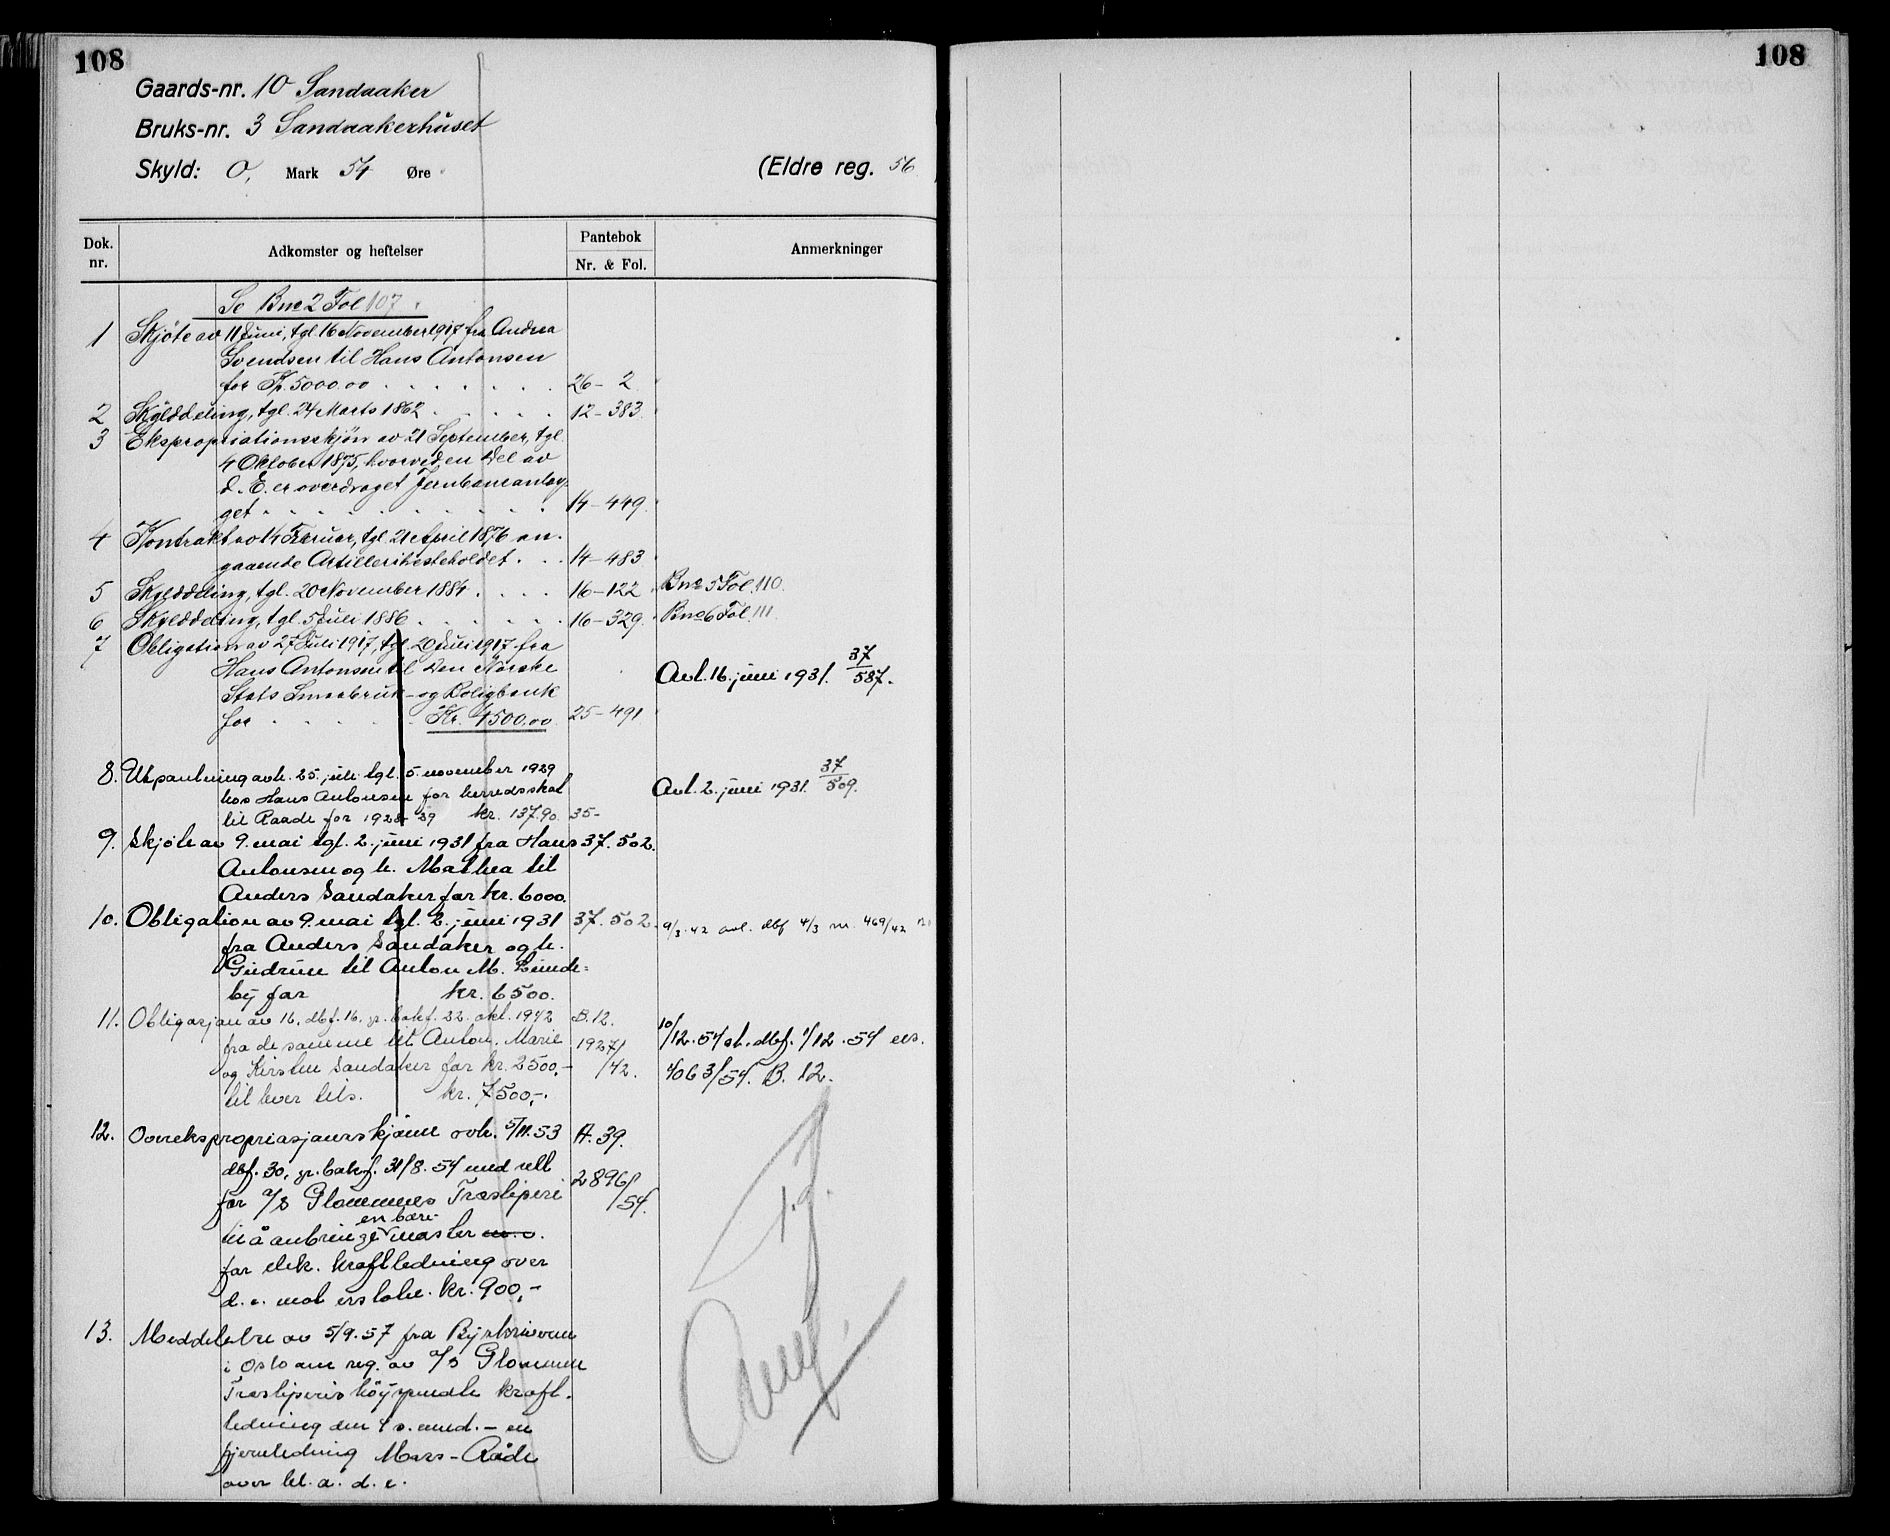 108
108
Gaards-nr. 10 Sandaaker
Bruks-nr. 3 Sandaakerhuset
Skyld: 0, Mark 54 Øre
(Eldre reg. 56
Dok. nr.
Adkomster og heftelser
Pantebok
Nr. & Fol.
Anmerkninger
Se Bno 2 Fol 107
1 Skjøte av 11 Juni, tgl. 16 November 1917 fra Andrea
Svendsen til Hans Antonsen
for Kr. 5000.00 26 - 2
2 Skylddeling, tgl. 24 Marts 1862 12 - 383
3 Ekspropriationsskjøn av 21 September, tgl.
4 Oktober 1875, hvorved en Del av
d. E. er overdraget Jernbaneanlæg-
get 14 - 449
4 Kontrakt av 14 Februar, tgl. 21 April 1876 an-
gaaende Artillerihesteholdet 14 - 483
5 Skylddeling, tgl. 20 November 1884 16 - 122 Bno 5 Fol. 110
6 Skylddeling, tgl. 5 Juli 1886 16 - 329 Bno 6 Fol. 111
7 Obligation av 27 Juli 1917, tgl. 20 Juli 1917 fra
Hans Antonsen til Den Norske
Stats Smaabruk- og Boligbank
for Kr. 4500.00 25 - 491
Avl. 16. juni 1931. 37/587.
8. Utpantning avh. 25. juli tgl. 5. november 1929
hos Hans Antonsen for herredsskat
til Raade for 1928-29 kr. 137.90. 35-
Avl. 2. juni 1931. 37/509.
9. Skjøte av 9. mai tgl. 2. juni 1931 fra Hans 37. 502.
Antonsen og h. Mathea til
Anders Sandaker for kr. 6000.
10. Obligation av 9. mai tgl. 2. juni 1931 37. 502. 9/3. 42 avl. dbf 4/3 nr. 469/42
fra Anders Sandaker og h.
Gudrun til Anton M. Lunde-
by for kr. 6500.
11. Obligasjon av 16. dbf. 16. gr. bokf. 22. okt. 1942 B. 12.
fra de samme til Anton, Marie 1927/
og Kirsten Sandaker for kr. 2500,- /42.
til hver tils. kr. 7500,-.
10/12. 54 sl. dbf. 1/12. 54
4063/54. B. 12.
12. Overekspropriasjonsskjønn avh. 5/11. 53 A. 39.
dbf. 30, gr. bokf. 31/8. 54 med rett 2896/
for A/S Glommens Træsliperi /54.
en bære-
til å anbringe master m.v.
for elek. kraftledning over
d. e. mot erstatn. kr. 900,-
13. Meddelelse av 5/9. 57 fra Byskriveren
i Oslo om reg. av A/S Glommen
Træsliperis høyspendte kraft-
ledning den 4 s. mnd. - en
fjernledning Moss - Råde
over bl. a. d. e.